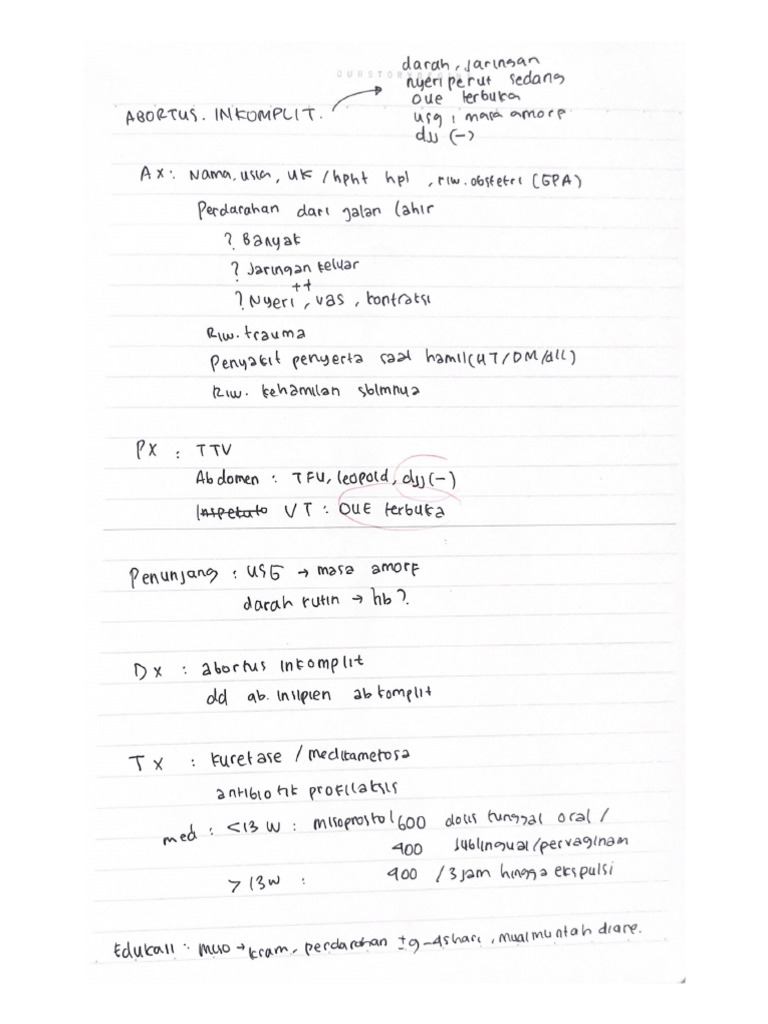 darah, jaringan
nyeri perut sedang
OUE terbuka
ABORTUS. INKOMPLIT. →
usg : masa amorf
djj (-)
Ax : Nama, usia, UK / hpht hpl , riw. obstetri (GPA)
Perdarahan dari jalan lahir
? Banyak
? Jaringan keluar
++
? Nyeri , vas , kontraksi
Riw. trauma
Penyakit penyerta saat hamil (HT/DM/dll)
Riw. kehamilan sblmnya
PX : TTV
Abdomen : TFU, leopold, djj (-)
VT : OUE terbuka
Penunjang : USG → masa amorf
darah rutin → hb ?
Dx : abortus inkomplit
dd ab. insipien ab komplit
Tx : kuretase / medikametosa
antibiotik profilaksis
med : <13 W : misoprostol 600 dosis tunggal oral /
400 sublingual/pervaginam
>13W : 400 /3 jam hingga ekspulsi
Edukasi : miso → kram, perdarahan ± hari, mual muntah diare.